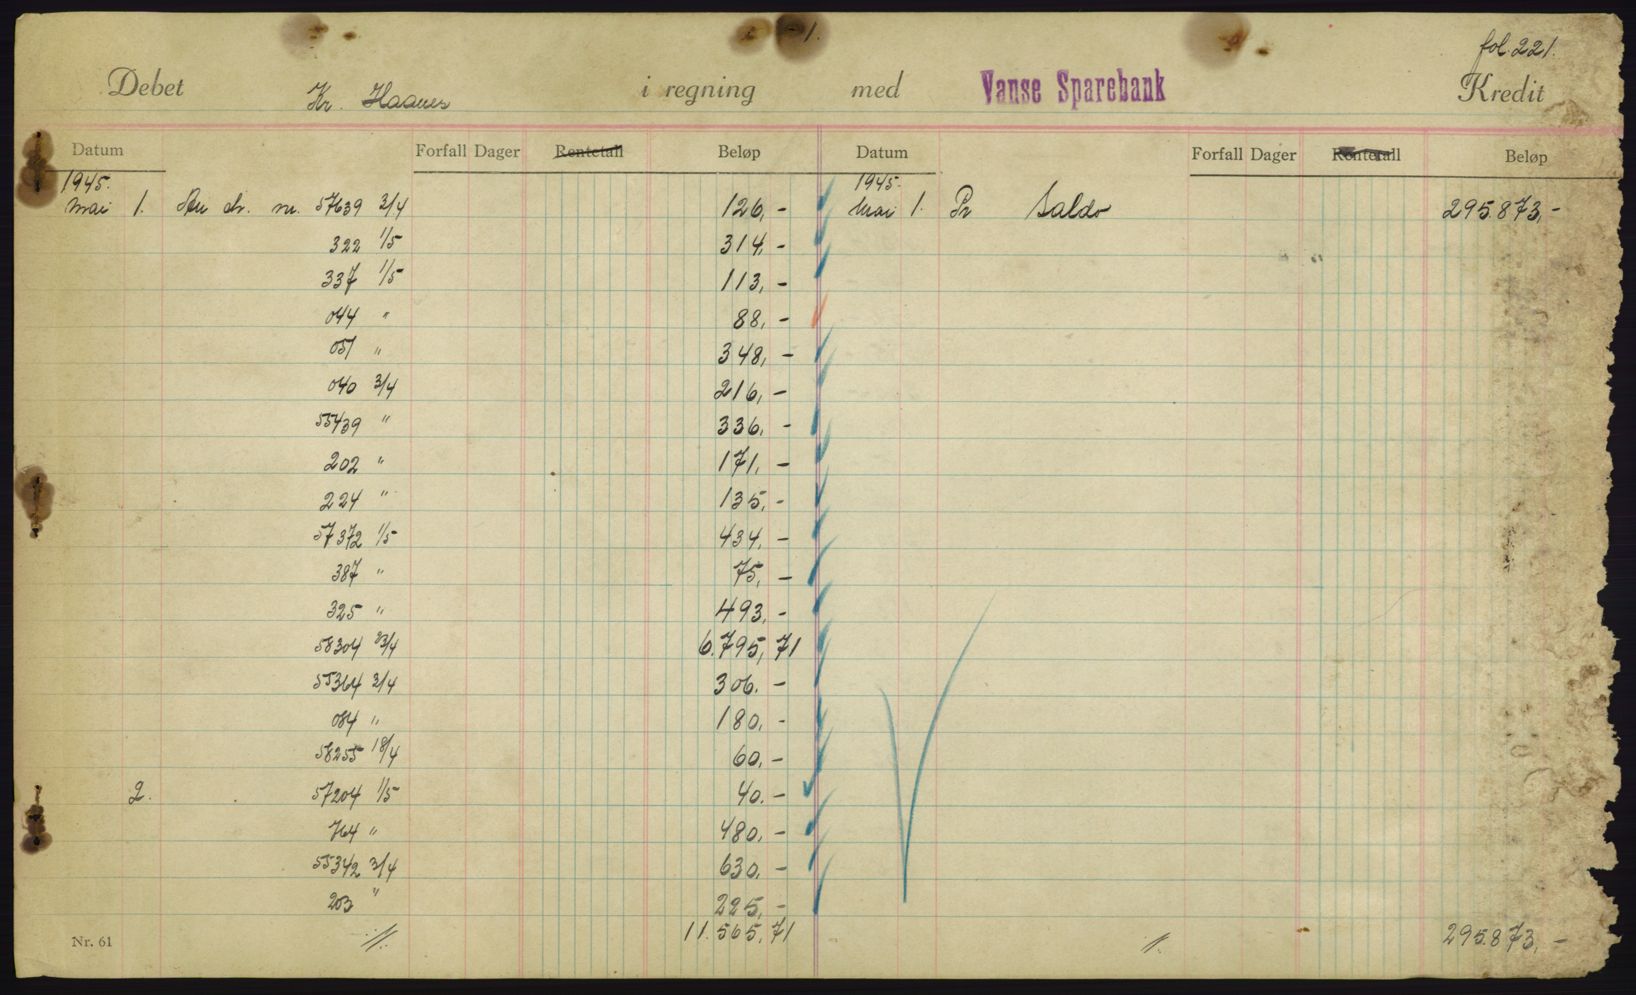 1.
fol. 221.
Debet Kr. Haanes i regning med Vanse Sparebank Kredit
Datum Forfall Dager Rentetall Beløp Datum Forfall Dager Rentetall Beløp
1945. 1945.
Mai 1. An ch. nr. 57639 3/4 126,- Mai 1. Pr Saldo 295.873,-
322 1/5 314,-
337 1/5 113,-
044 " 88,-
051 " 348,-
040 3/4 216,-
55439 " 336,-
202 " 171,-
224 " 135,-
57372 1/5 434,-
387 " 75,-
325 " 493,-
58304 23/4 6.795,71
55364 3/4 306,-
084 " 180,-
58255 18/4 60,-
2. 57204 1/5 40,-
764 " 480,-
55342 3/4 630,-
203 " 225,-
Nr. 61 11.565,71 295.873,-